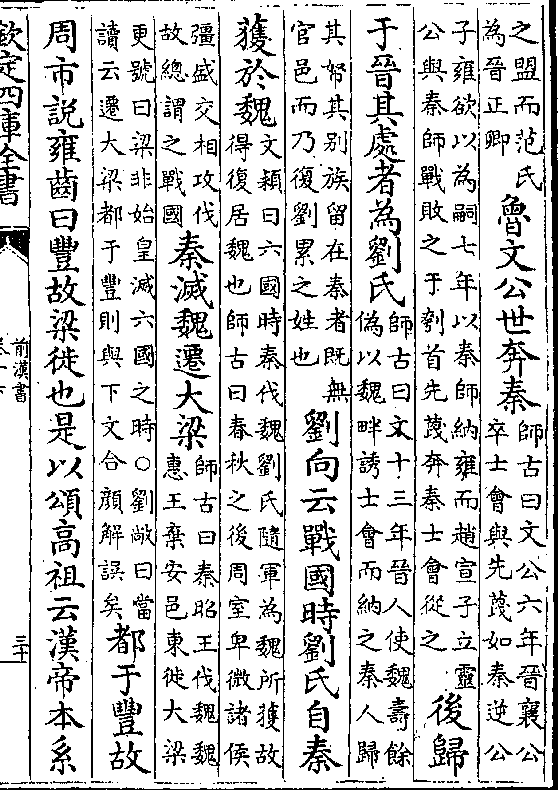 之盟而范氏
為晉正卿
魯文公世奔秦
師古曰文公六年晉襄公
卒士會與先蔑如秦逆公
子雍欲以為嗣七年以秦師納雍而趙宣子立靈
公與秦師戰敗之于刳首先蔑奔秦士會從之
後歸
于晉其處者為劉氏
師古曰文十三年晉人使魏壽餘
偽以魏畔誘士會而納之秦人歸
其帑其別族留在秦者既無
官邑而乃復劉累之姓也
劉向云戰國時劉氏自秦
獲於魏
文穎曰六國時秦伐魏劉氏隨軍為魏所獲故
得復居魏也師古曰春秋之後周室卑微諸侯
彊盛交相攻伐
故總謂之戰國
秦滅魏遷大梁
師古曰秦昭王伐魏魏
惠王棄安邑東徙大梁
更號曰梁非始皇滅六國之時○劉敞曰當
讀云遷大梁都于豐則與下文合顏解誤矣
都于豐故
周市說雍齒曰豐故梁徙也是以頌高祖云漢帝本系
欽定四庫全書
前漢書
三十